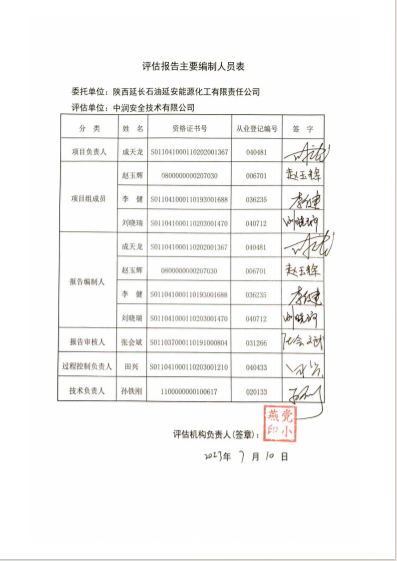 评估报告主要编制人员表
委托单位：陕西延长石油延安能源化工有限责任公司
评估单位：中润安全技术有限公司
分 类 姓 名 资格证书号 从业登记编号 签 字
项目负责人 成天龙 S011041000110202001367 040481
项目组成员 赵玉辉 0800000000207030 006701 赵玉辉
李 健 S011041000110193001688 036235 李健
刘晓瑞 S011041000110203001470 040712 刘晓瑞
报告编制人 成天龙 S011041000110202001367 040481
赵玉辉 0800000000207030 006701 赵玉辉
李 健 S011041000110193001688 036235 李健
刘晓瑞 S011041000110203001470 040712 刘晓瑞
报告审核人 张会斌 S011037000110191000804 031266
过程控制负责人 田兴 S011041000110203001210 040433
技术负责人 孙铁刚 1100000000100617 020133
评估机构负责人(签章)：
燕党
印小
2023年 7 月 10 日